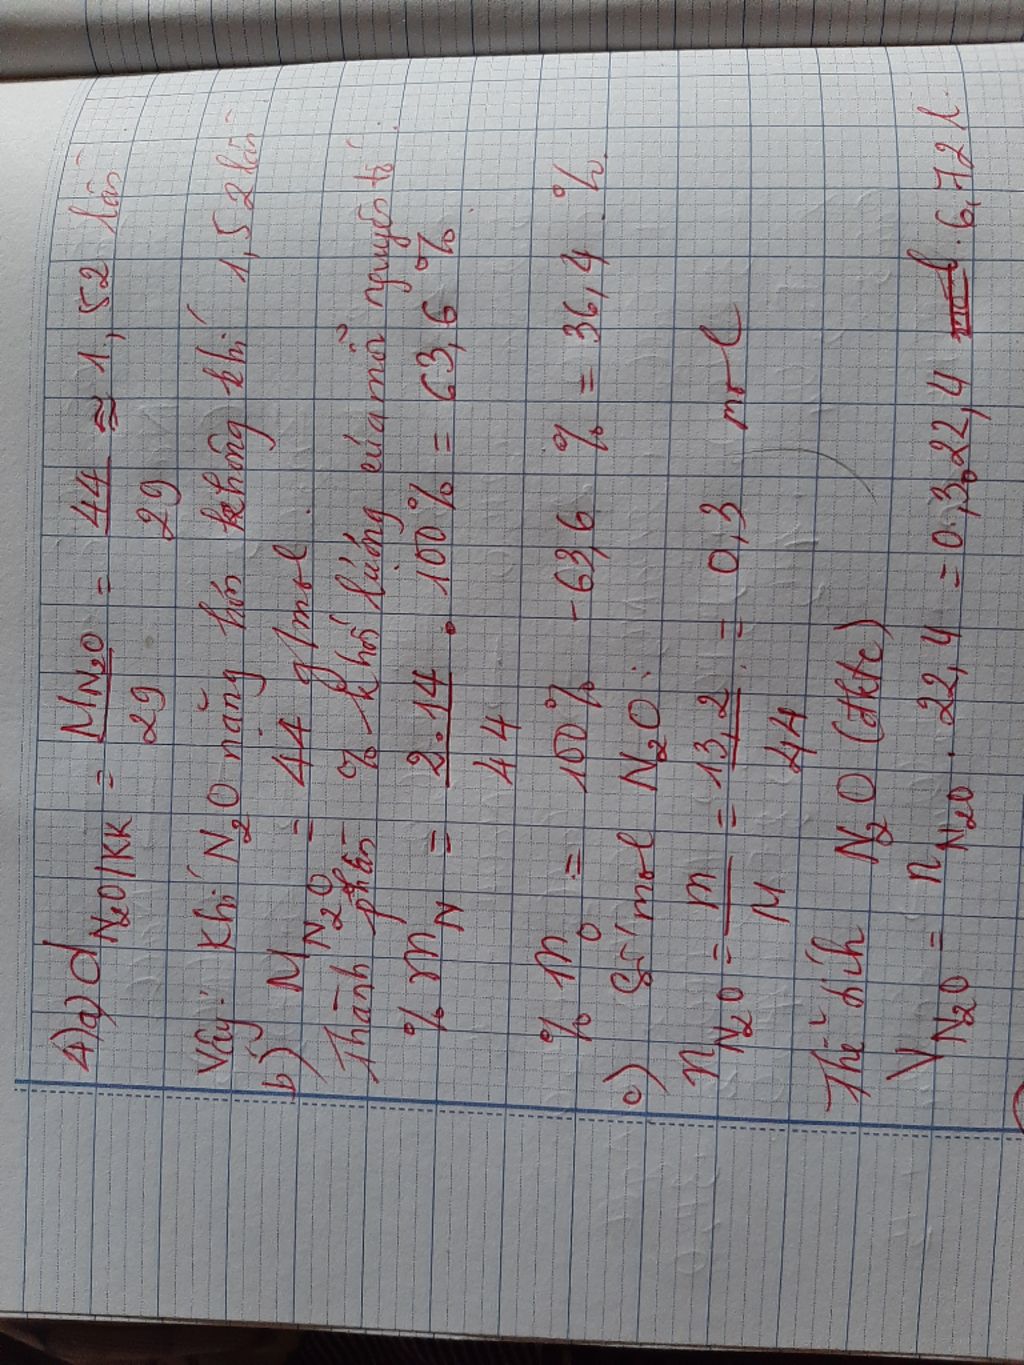 4) a) d N₂O/KK = M N₂O / 29 = 44 / 29 ≈ 1,52 lần
Vậy: Khí N₂O nặng hơn không khí 1,52 lần
b) M N₂O = 44 g/mol.
Thành phần % khối lượng của mỗi nguyên tố.
% m N = 2.14 / 44 . 100% = 63,6 %
% m O = 100% - 63,6 % = 36,4 %.
c) Số mol N₂O:
n N₂O = m / M = 13,2 / 44 = 0,3 mol
Thể tích N₂O (đktc)
V N₂O = n N₂O . 22,4 = 0,3.22,4 . 6,72 l.